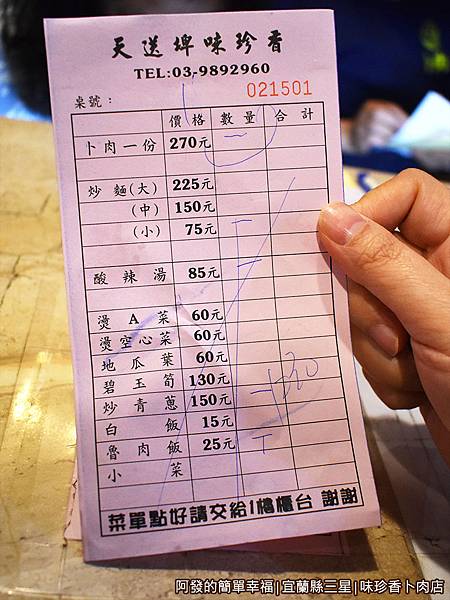 天送埤味珍香
TEL:03-9892960
021501
桌號：
價格 數量 合計
卜肉一份 270元 一
炒麵(大) 225元
(中) 150元
(小) 75元
酸辣湯 85元
燙A菜 60元
燙空心菜 60元
地瓜葉 60元
碧玉筍 130元
炒青蔥 150元
白飯 15元
魯肉飯 25元
小菜
菜單點好請交給1樓櫃台 謝謝
阿發的簡單幸福|宜蘭縣三星|味珍香卜肉店